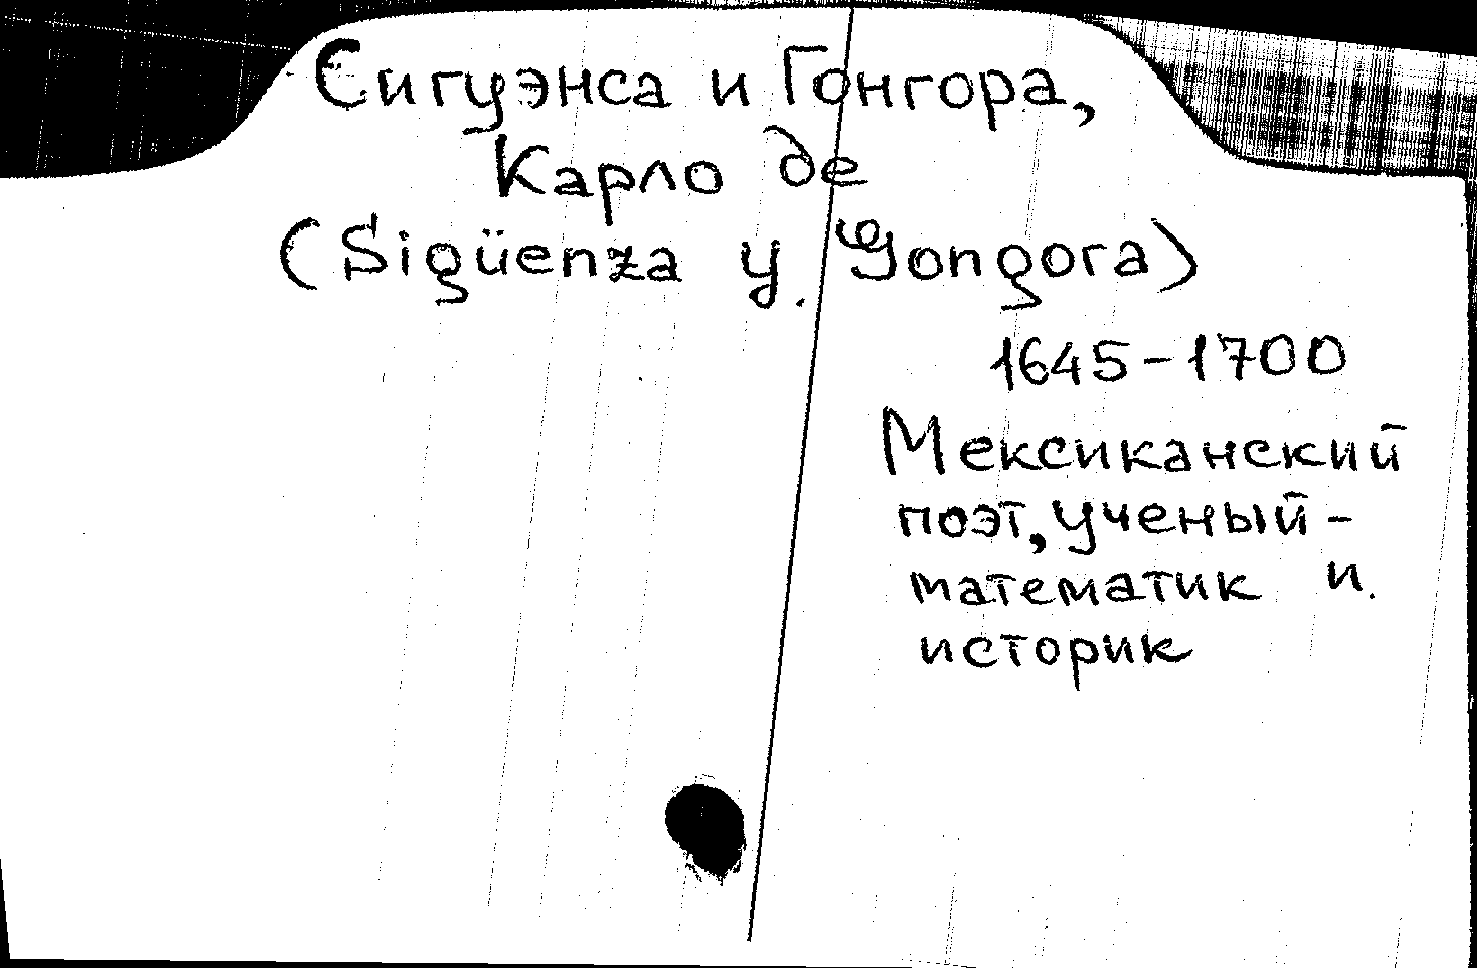 Сигуэнса и Гонгора,
Карло де
(Sigüenza y Gongora)
1645-1700
Мексиканский
поэт, ученый-
математик и
историк